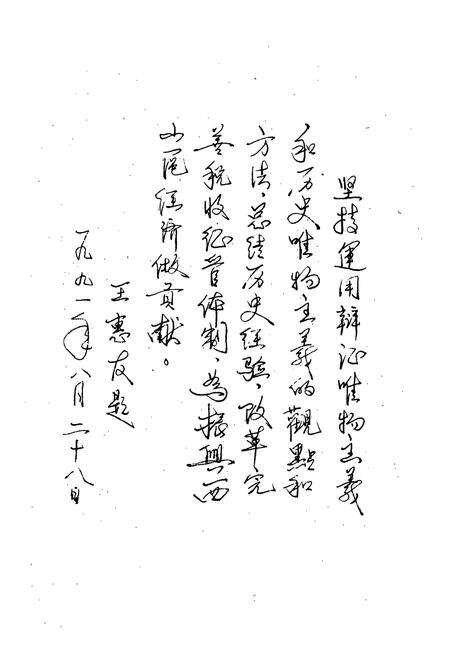 坚持運用辯证唯物主義
和历史唯物主義的觀點和
方法，总结历史经验，改革完
善税收征管体制，為振興西
山區经济做貢献。
王惠友題
一九九一年八月二十八日